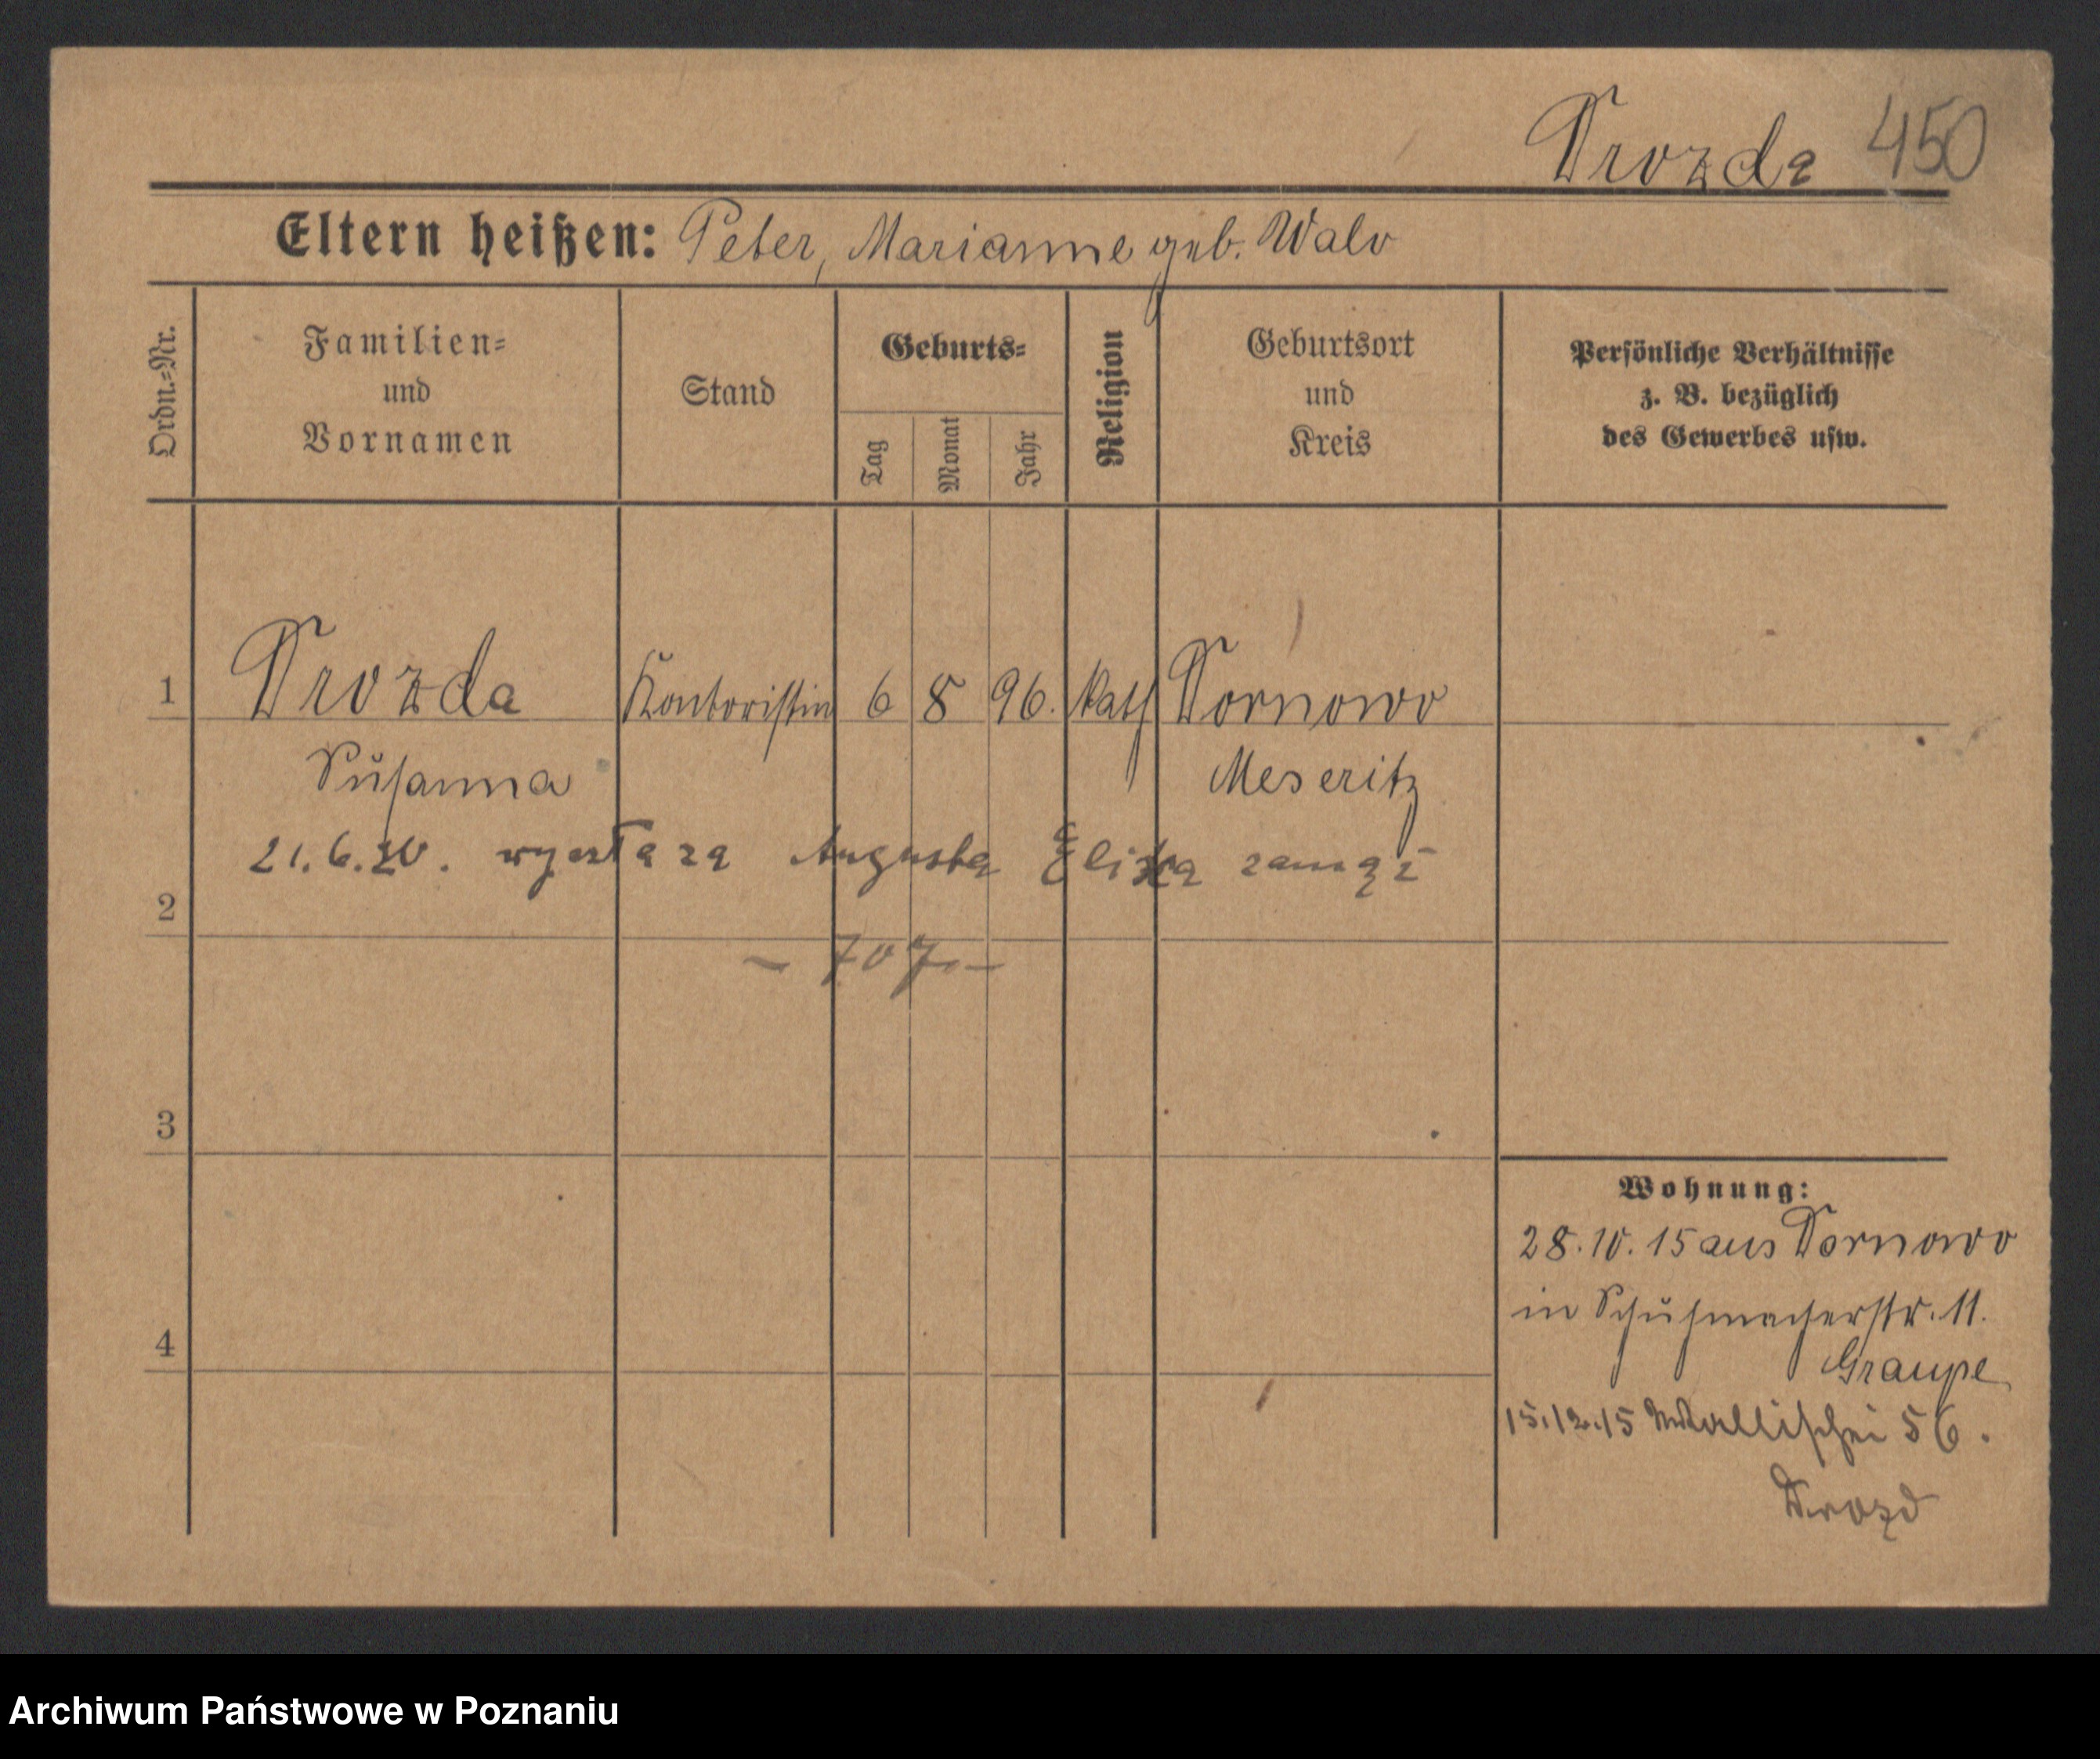 Drozda 450
Eltern heißen: Peter, Marianne geb. Walo
Ordn.=Nr.
Familien=
und
Vornamen
Stand
Geburts=
Tag
Monat
Jahr
Religion
Geburtsort
und
Kreis
Persönliche Verhältnisse
z. B. bezüglich
des Gewerbes usw.
1 Drozda Kontoristin 6 8 96. kath Tornowo
Susanna Meseritz
21.6.20. wyszła za Augusta zamąż
2
– 707 –
3
4
Wohnung:
28.10.15 aus Tornowo
in Schuhmacherstr. 11.
Graupe
15.12.15 Wallischei 56.
Drozd
Archiwum Państwowe w Poznaniu